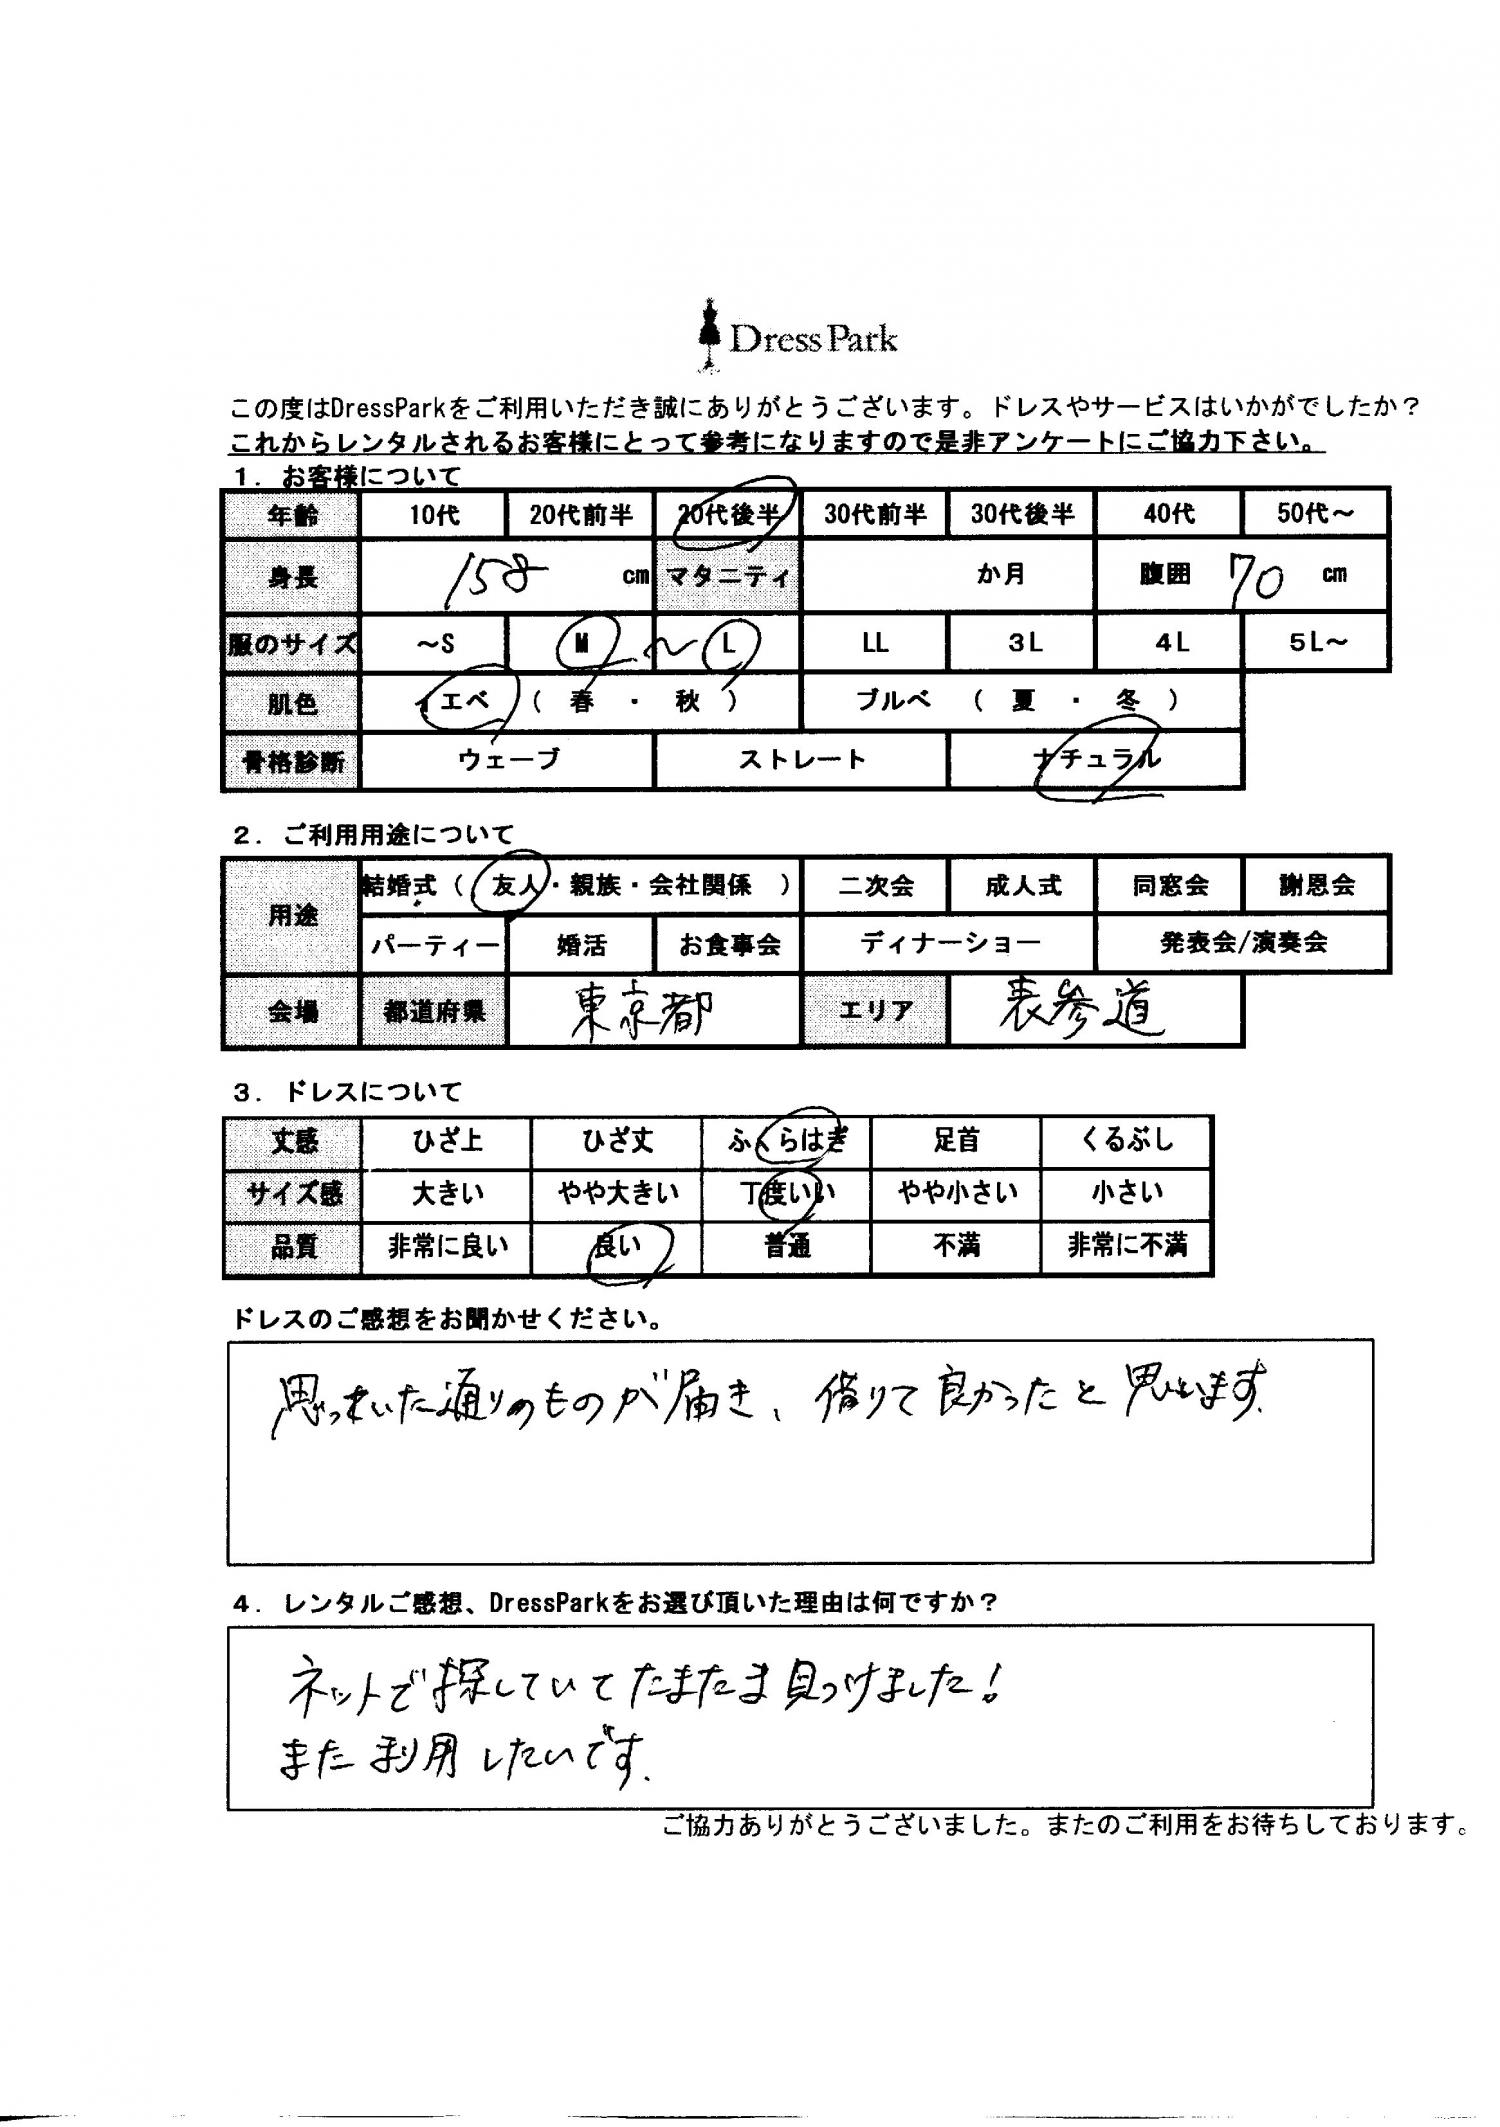 Dress Park
この度はDressParkをご利用いただき誠にありがとうございます。ドレスやサービスはいかがでしたか？
これからレンタルされるお客様にとって参考になりますので是非アンケートにご協力下さい。
1. お客様について
年齢 10代 20代前半 20代後半 30代前半 30代後半 40代 50代～
身長 158 cm マタニティ か月 腹囲 70 cm
服のサイズ ～S M ～ L LL 3L 4L 5L～
肌色 イエベ（ 春 ・ 秋 ） ブルベ （ 夏 ・ 冬 ）
骨格診断 ウェーブ ストレート ナチュラル
2. ご利用用途について
用途 結婚式（ 友人・親族・会社関係 ） 二次会 成人式 同窓会 謝恩会
パーティー 婚活 お食事会 ディナーショー 発表会/演奏会
会場 都道府県 東京都 エリア 表参道
3. ドレスについて
丈感 ひざ上 ひざ丈 ふくらはぎ 足首 くるぶし
サイズ感 大きい やや大きい 丁度いい やや小さい 小さい
品質 非常に良い 良い 普通 不満 非常に不満
ドレスのご感想をお聞かせください。
思っていた通りのものが届き、借りて良かったと思います.
4. レンタルご感想、DressParkをお選び頂いた理由は何ですか？
ネットで探していてたまたま見つけました！
また利用したいです.
ご協力ありがとうございました。またのご利用をお待ちしております。